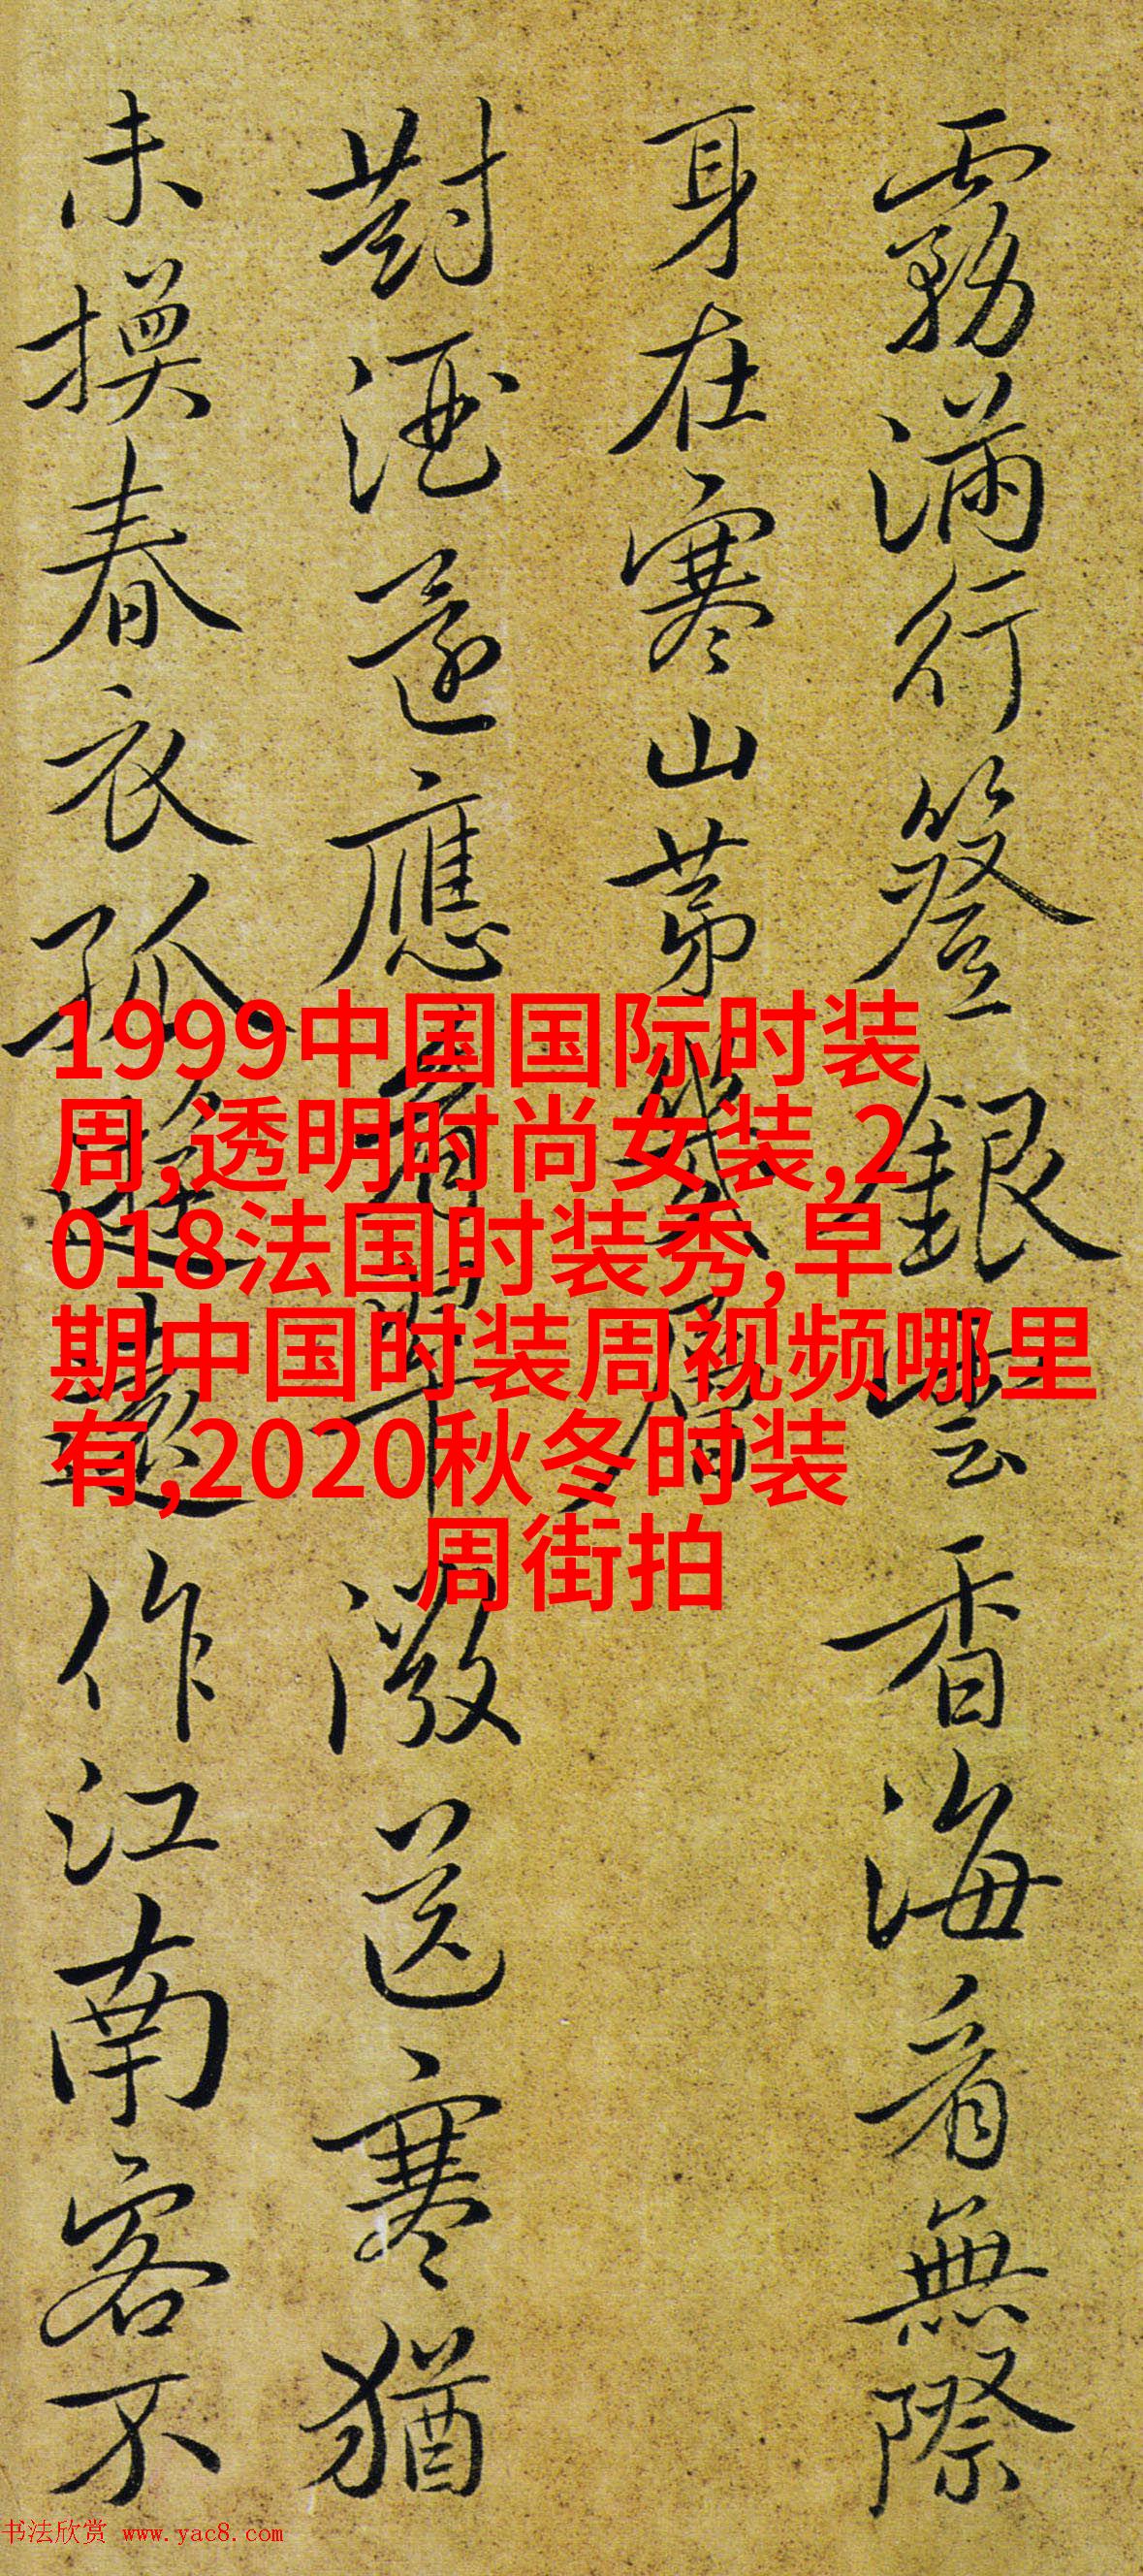 霧滿行簦銀雲香海看無際
身在寒山第幾層
對酒還應看澂送寒猶
未換春衣孤遊還作江南客不
1999中国国际时装
周,透明时尚女装,2
018法国时装秀,早
期中国时装周视频哪里
有,2020秋冬时装
周街拍
书法欣赏 www.yac8.com